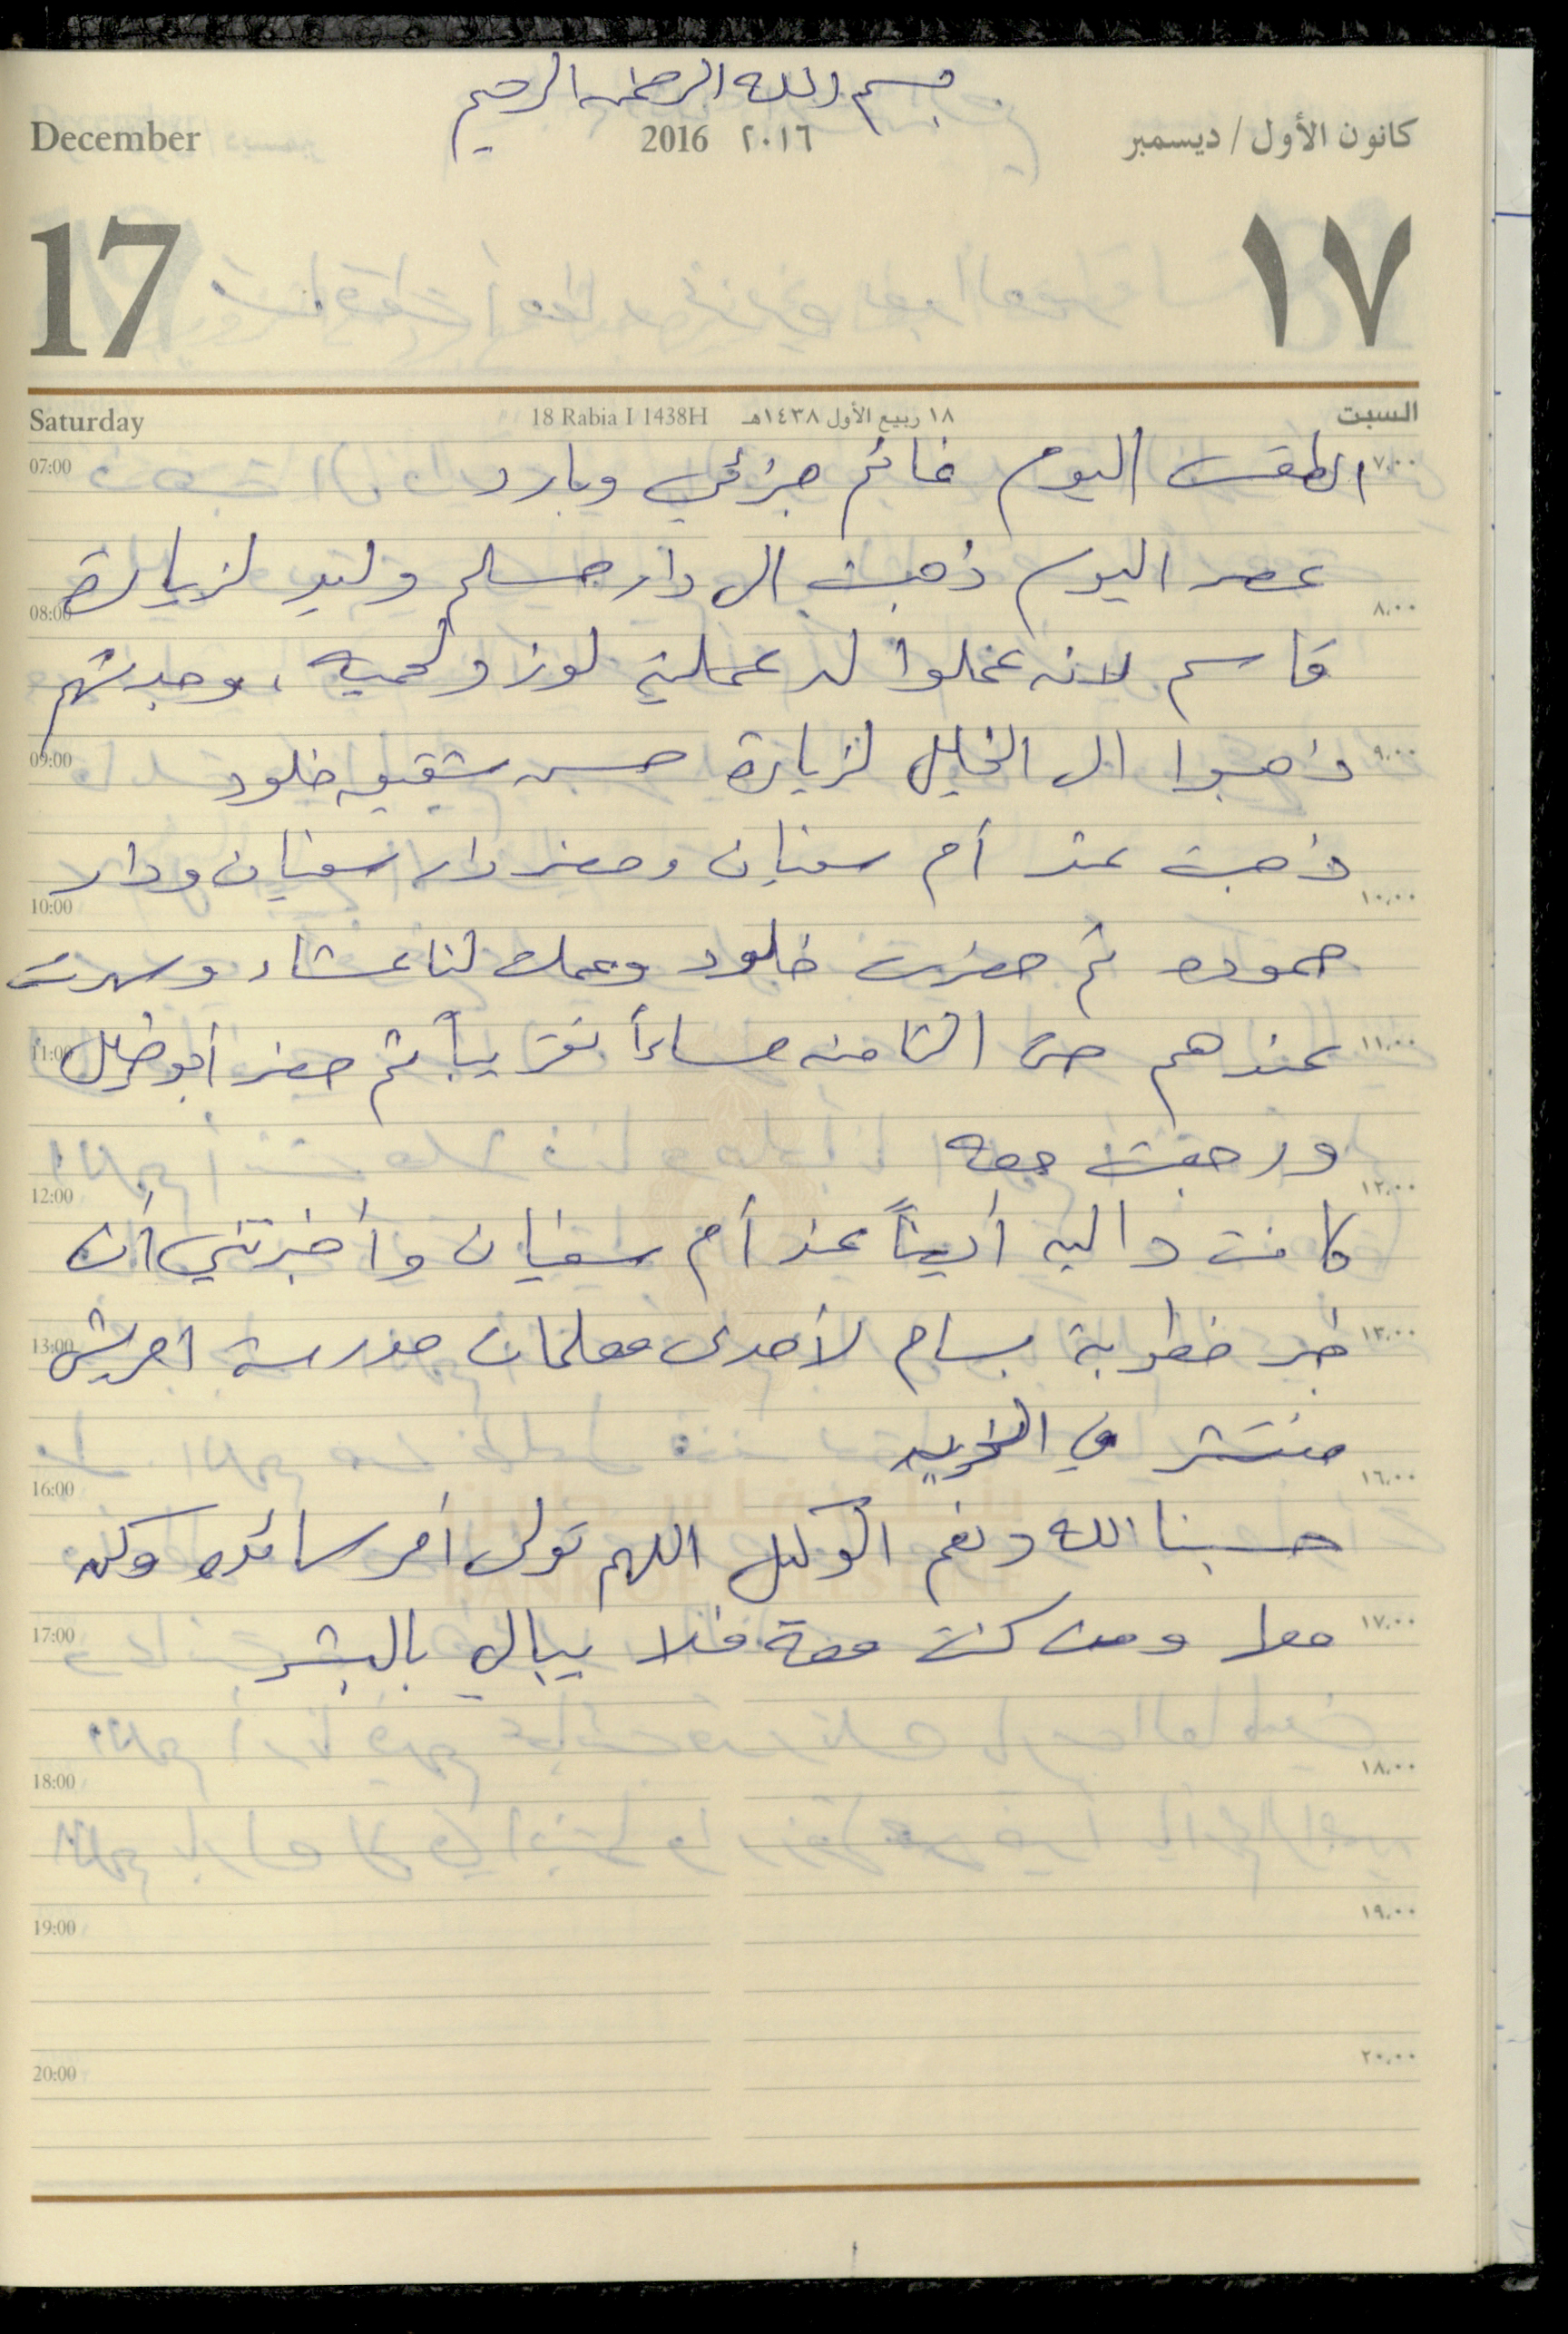 بسم الله الرحمن الرحيم
December 2016 ٢٠١٦ كانون الأول / ديسمبر
17 ١٧
Saturday 18 Rabia I 1438H ١٨ ربيع الأول ١٤٣٨هـ السبت
07:00 الطقس اليوم غائم جزئي وبارد ٧،٠٠
عصر اليوم ذهبت الى دار مسلم وليد لزيارة
08:00 ٨،٠٠
قاسم لانه عملوا له عملية لوز ولحميه، وجدتهم
09:00 ذهبوا الى الخليل لزيارة حسن شقيق خلود ٩،٠٠
ذهبت عند أم سفيان وحضر دار سفيان ودار
10:00 ١٠،٠٠
حموده ثم حضرت خلود وعملت لنا عشاء وسهرت
11:00 عندهم حتى الثامنه مساءاً تقريباً ثم حضر أبو خليل ١١،٠٠
ورجعت معه
12:00 ١٢،٠٠
كانت داليه أيضاً عند أم سفيان وأخبرتني أن
13:00 خبر خطوبة بسام لأحدى معلمات مدرسة امريش ١٣،٠٠
منتشر في
16:00 ١٦،٠٠
حسبنا الله ونعم الوكيل اللهم تولى أمر سائده وكن
17:00 معها ومن كنت معه فلا يبالي بالبشر ١٧،٠٠
18:00 ١٨،٠٠
19:00 ١٩،٠٠
20:00 ٢٠،٠٠